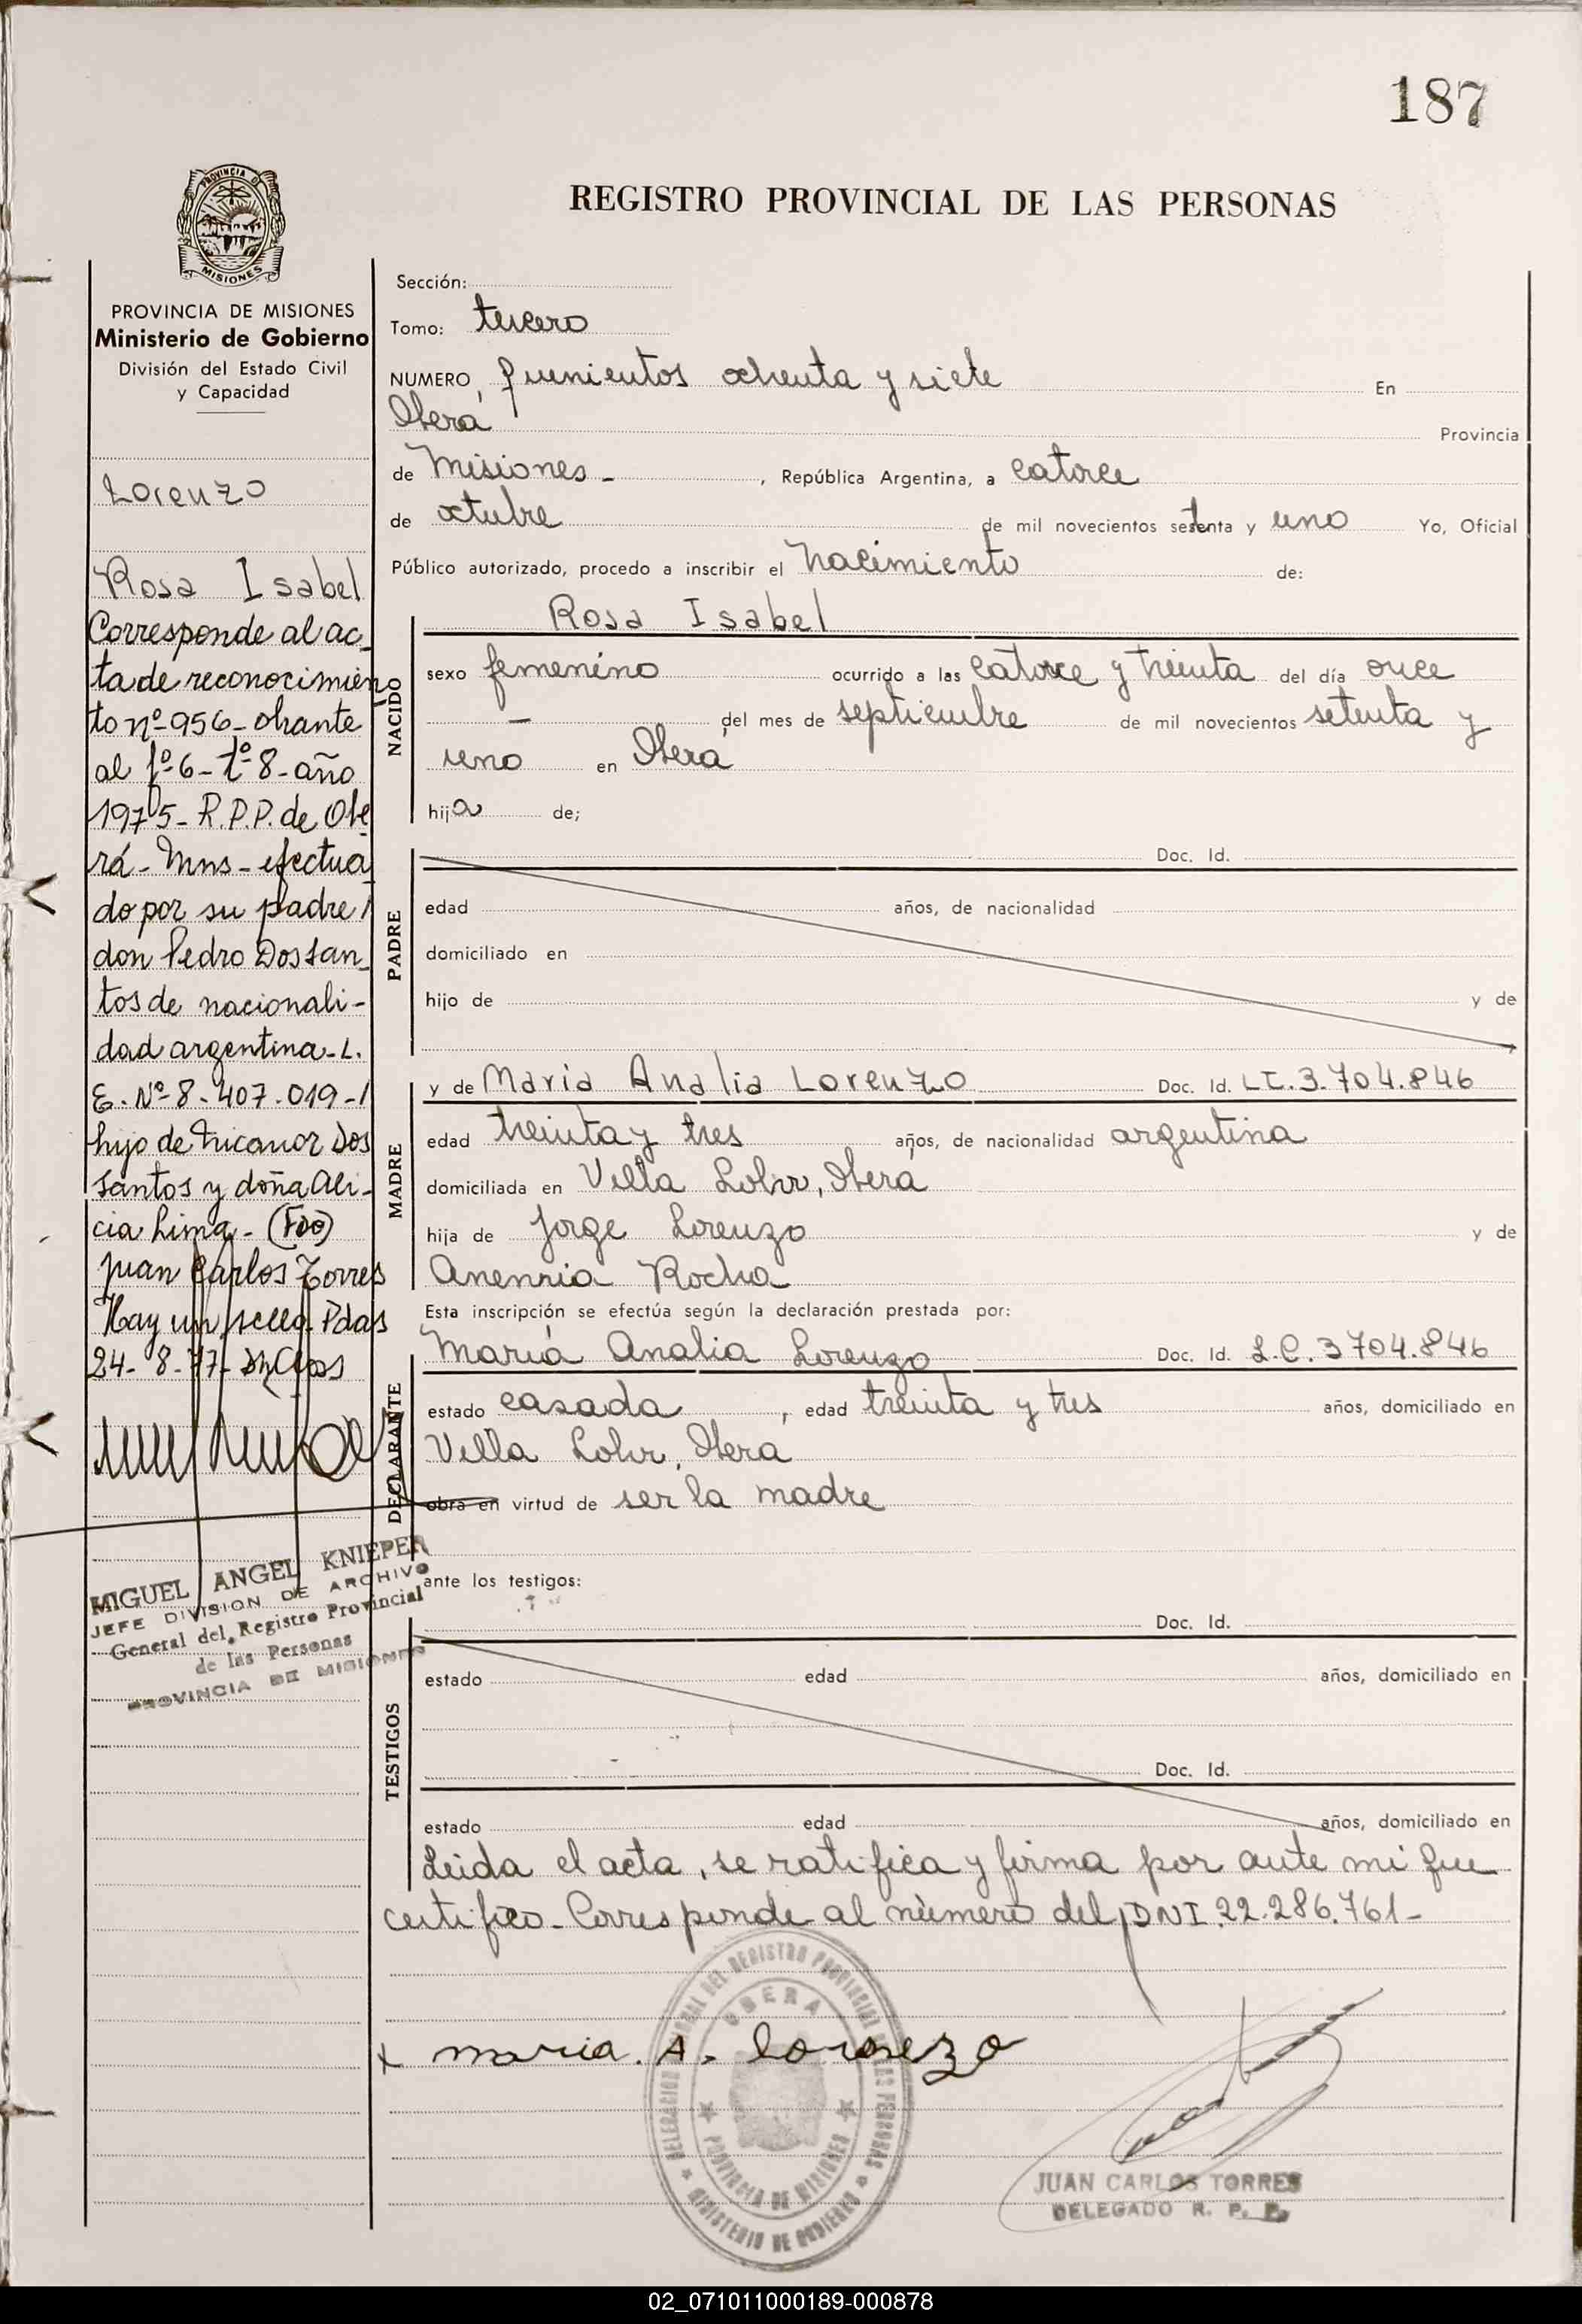 187
PROVINCIA DE
MISIONES
REGISTRO PROVINCIAL DE LAS PERSONAS
PROVINCIA DE MISIONES
Ministerio de Gobierno
División del Estado Civil
y Capacidad
Lorenzo
Rosa Isabel
Corresponde al ac_
ta de reconocimien_
to nº 956_ obrante
al fº 6_ tº 8_ año
1975_ R.P.P. de Obe_
rá_ Mns_ efectua_
do por su padre /
don Pedro Dos San_
tos de nacionali-
dad argentina_ L.
E. Nº 8.407.019_/
hijo de Nicanor Dos
Santos y doña Ali-
cia Lima_ (Fdo)
Juan Carlos Torres
Hay un sello Pdas
24-8-77-
MIGUEL ANGEL KNIEPER
JEFE DIVISION DE ARCHIVO
General del Registro Provincial
de las Personas
PROVINCIA DE MISIONES
Sección:
Tomo: tercero
NUMERO, quinientos ochenta y siete En
Oberá Provincia
de Misiones_ , República Argentina, a catorce
de octubre de mil novecientos setenta y uno Yo, Oficial
Público autorizado, procedo a inscribir el nacimiento de:
NACIDO
Rosa Isabel
sexo femenino ocurrido a las catorce y treinta del día once
_ del mes de septiembre de mil novecientos setenta y
uno en Oberá
hija de;
PADRE
Doc. Id.
edad años, de nacionalidad
domiciliado en
hijo de y de
MADRE
y de Maria Analia Lorenzo Doc. Id. LC. 3.704.846
edad treinta y tres años, de nacionalidad argentina
domiciliada en Villa Lohr, Oberá
hija de Jorge Lorenzo y de
Rocha
Esta inscripción se efectúa según la declaración prestada por:
DECLARANTE
María Analia Lorenzo Doc. Id. L.C. 3704.846
estado casada , edad treinta y tres años, domiciliado en
Villa Lohr, Oberá
obra en virtud de ser la madre
ante los testigos:
TESTIGOS
Doc. Id.
estado edad años, domiciliado en
Doc. Id.
estado edad años, domiciliado en
Leida el acta, se ratifica y firma por ante mi que
certifico_ Corresponde al número del DNI.22.286.761_
x maria. A. lorenzo
DELEGACION DEL REGISTRO PROVINCIAL DE LAS PERSONAS
OBERA
PROVINCIA DE MISIONES
MINISTERIO DE GOBIERNO
JUAN CARLOS TORRES
DELEGADO R. P. P.
02_071011000189-000878